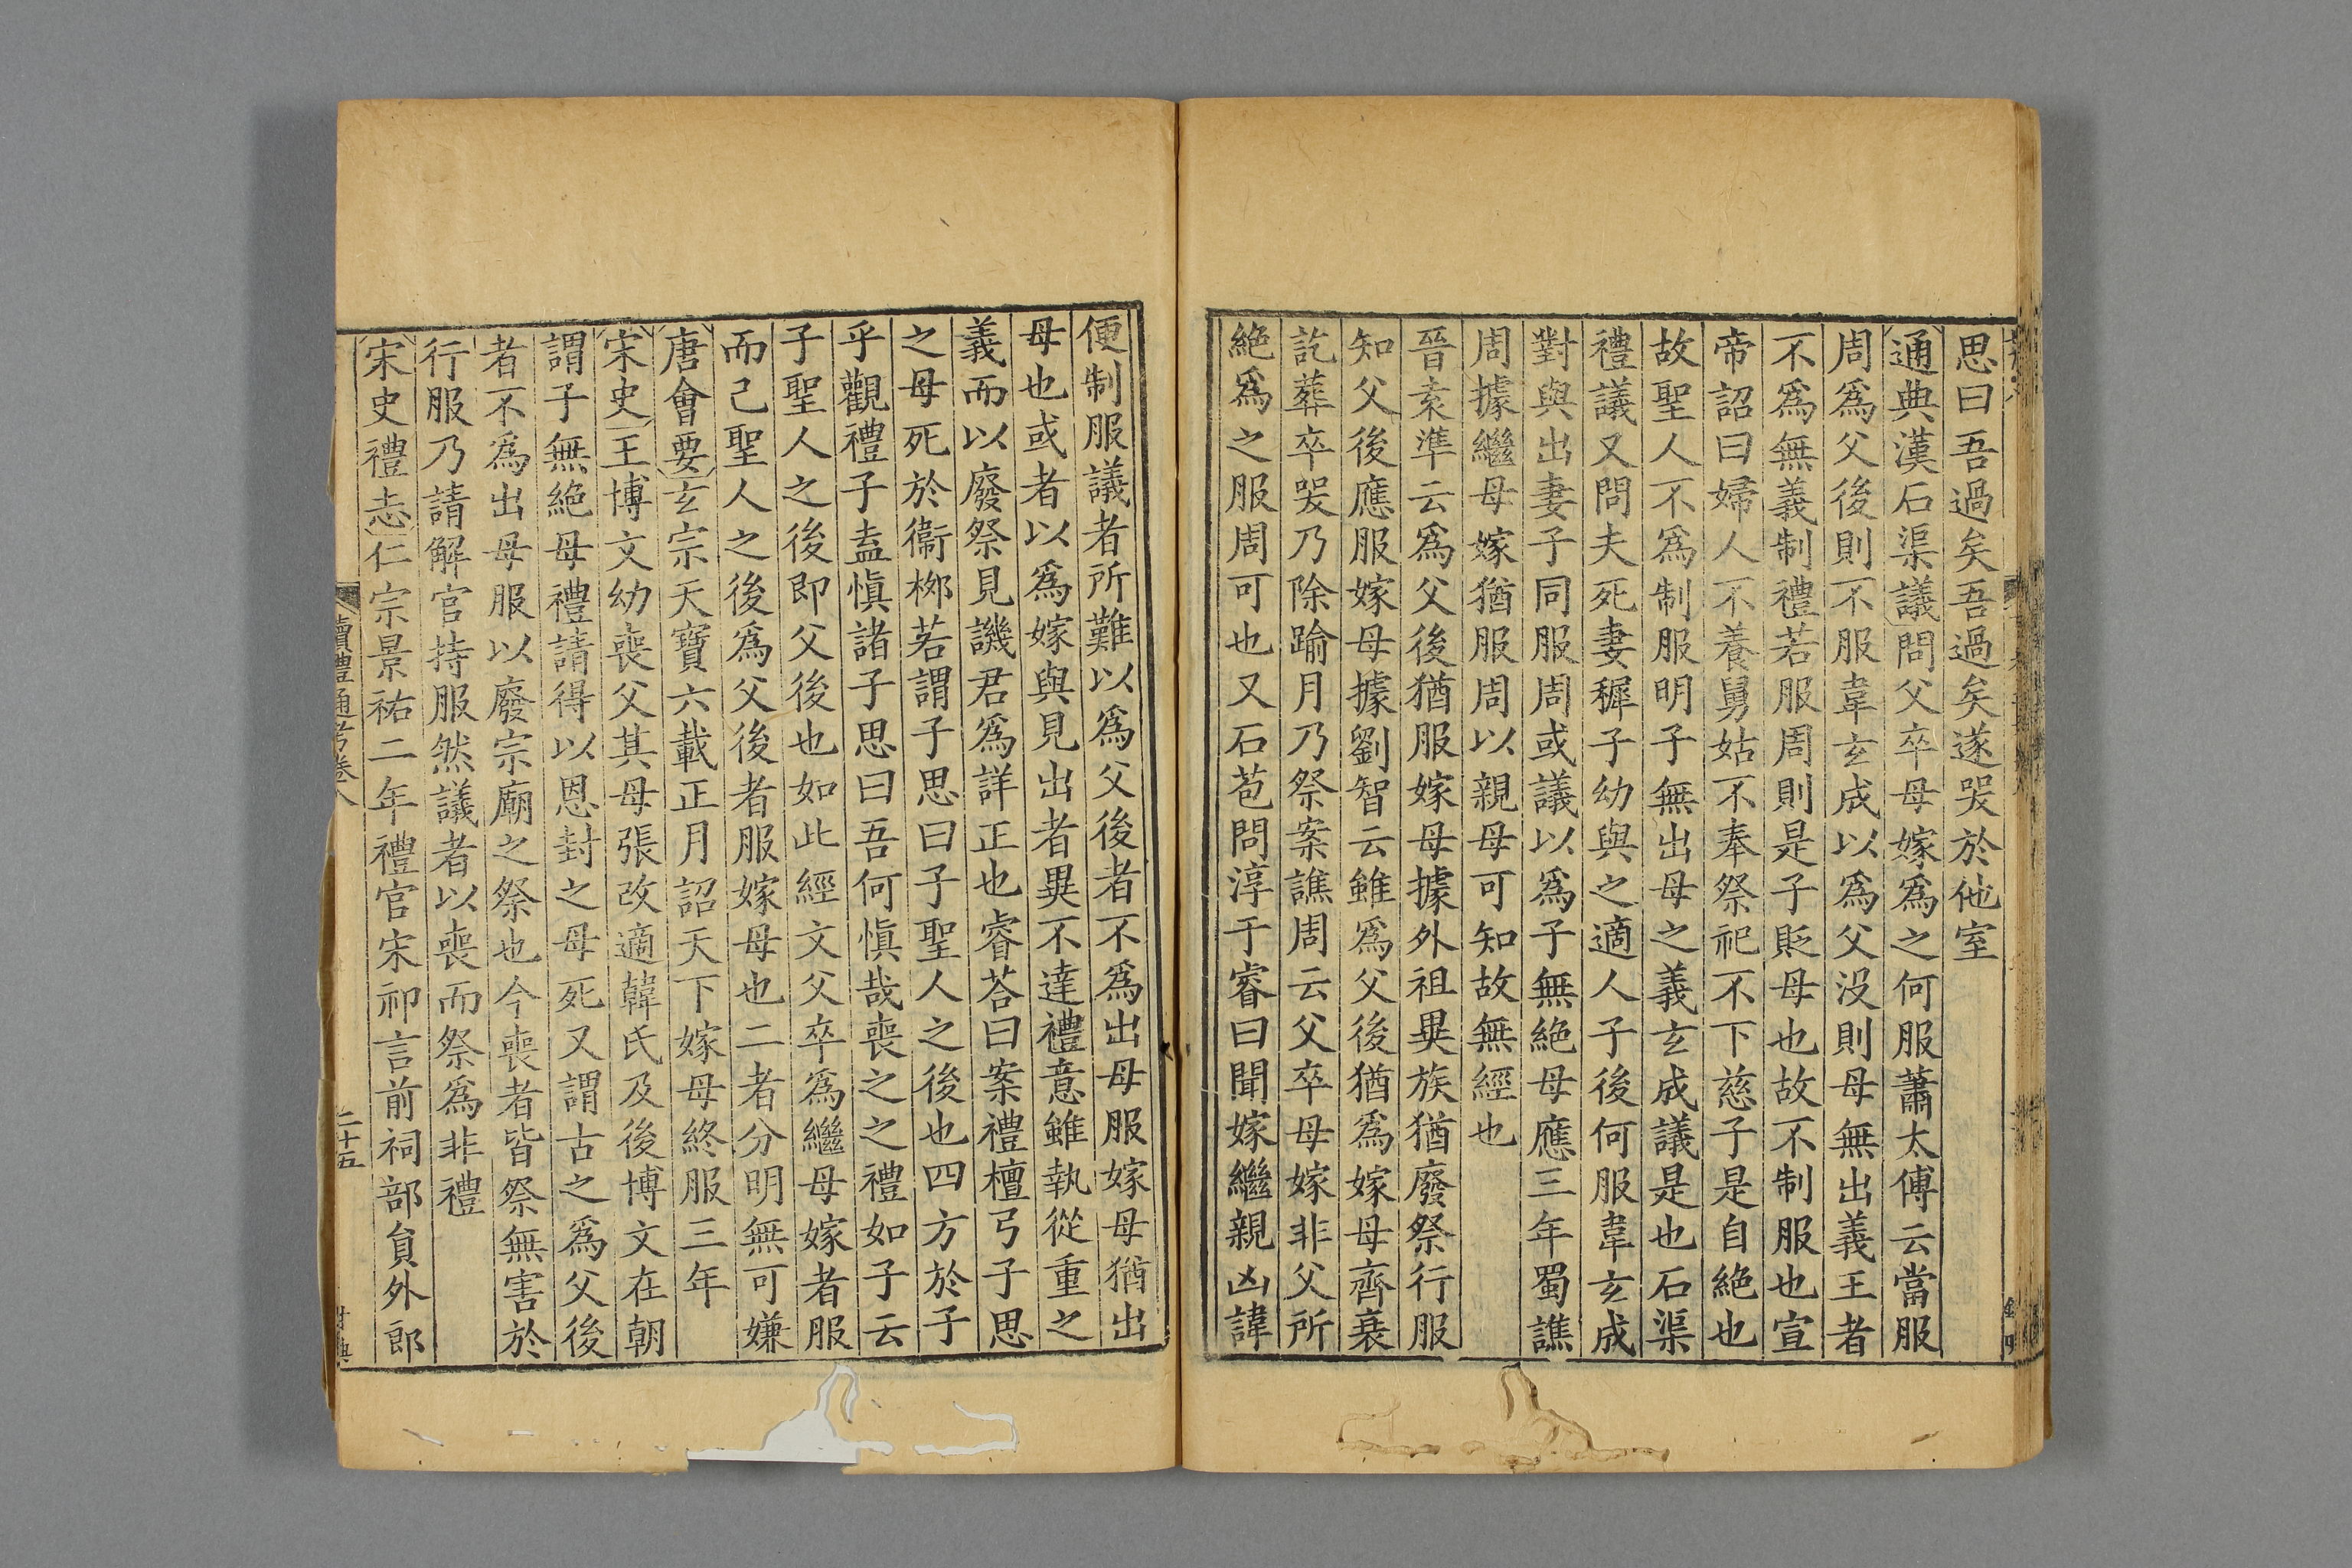 思曰吾過矣吾過矣遂哭於他室
通典漢石渠議問父卒母嫁爲之何服蕭太傅云當服
周爲父後則不服韋玄成以爲父没則母無出義王者
不爲無義制禮若服周則是子貶母也故不制服也宣
帝詔曰婦人不養舅姑不奉祭祀不下慈子是自絶也
故聖人不爲制服明子無出母之義玄成議是也石渠
禮議又問夫死妻穉子幼與之適人子後何服韋玄成
對與出妻子同服周或議以爲子無絶母應三年蜀譙
周據繼母嫁猶服周以親母可知故無經也
晉袁準云爲父後猶服嫁母據外祖異族猶廢祭行服
知父後應服嫁母據劉智云雖爲父後猶爲嫁母齊衰
訖葬卒哭乃除踰月乃祭案譙周云父卒母嫁非父所
絶爲之服周可也又石苞問淳于睿曰聞嫁繼親凶諱
便制服議者所難以爲父後者不爲出母服嫁母猶出
母也或者以爲嫁與見出者異不達禮意雖執從重之
義而以廢祭見譏君爲詳正也睿荅曰案禮檀弓子思
之母死於衞桞若謂子思曰子聖人之後也四方於子
乎觀禮子盍愼諸子思曰吾何愼哉喪之之禮如子云
子聖人之後即父後也如此經文父卒爲繼母嫁者服
而己聖人之後爲父後者服嫁母也二者分明無可嫌
唐會要玄宗天寶六載正月詔天下嫁母終服三年
宋史王博文幼喪父其母張改適韓氏及後博文在朝
謂子無絶母禮請得以恩封之母死又謂古之爲父後
者不爲出母服以廢宗廟之祭也今喪者皆祭無害於
行服乃請解官持服然議者以喪而祭爲非禮
宋史禮志仁宗景祐二年禮官宋祁言前祠部貟外郎
讀禮通考卷八
二十五